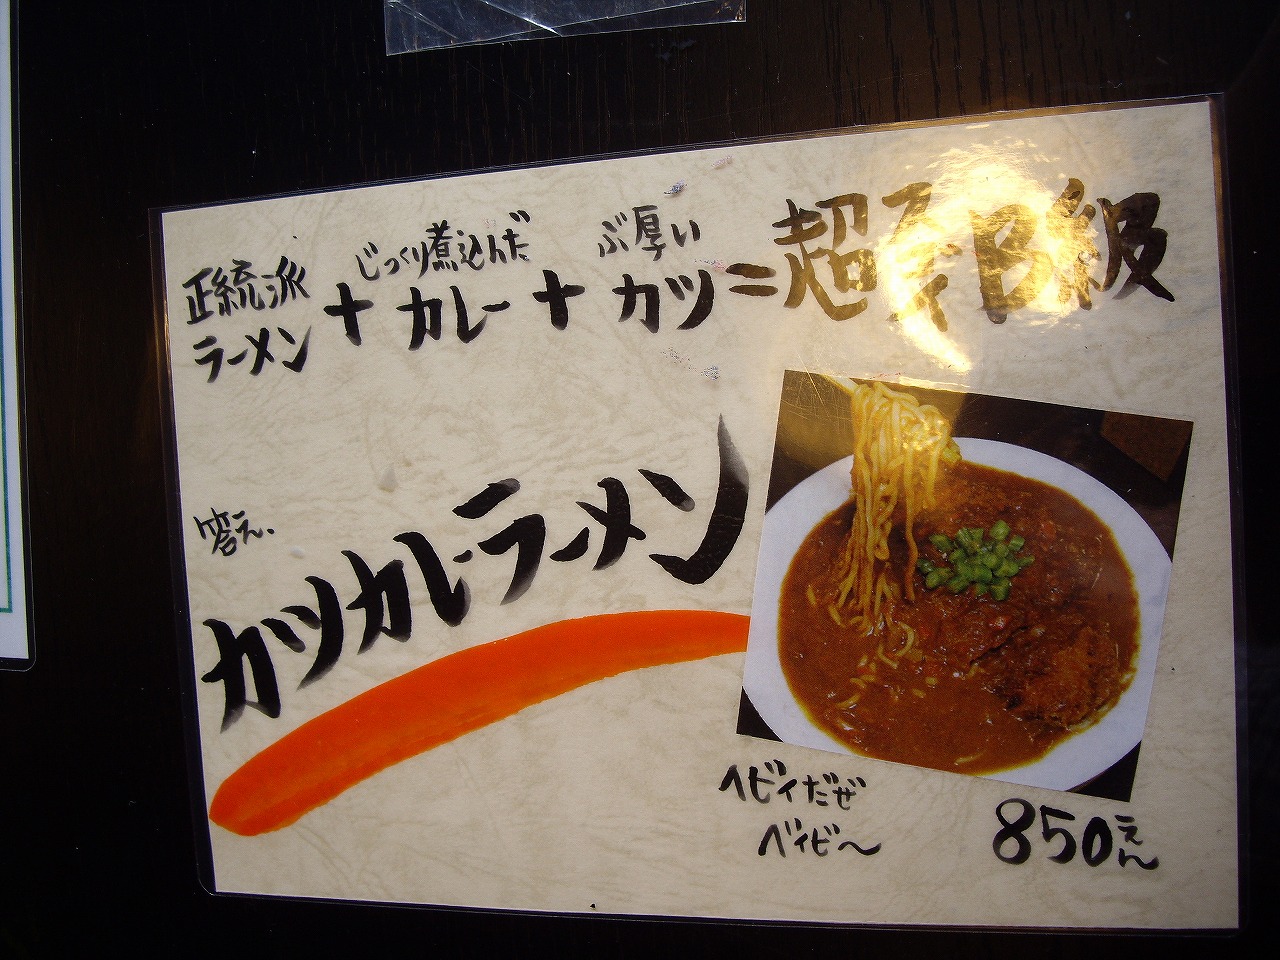 正統派
ラーメン
+
じっくり煮込んだ
カレー
+
ぶ厚い
カツ
=
超 B級
答え、
カツカレーラーメン
ヘビィだぜ
ベイビ〜
850えん